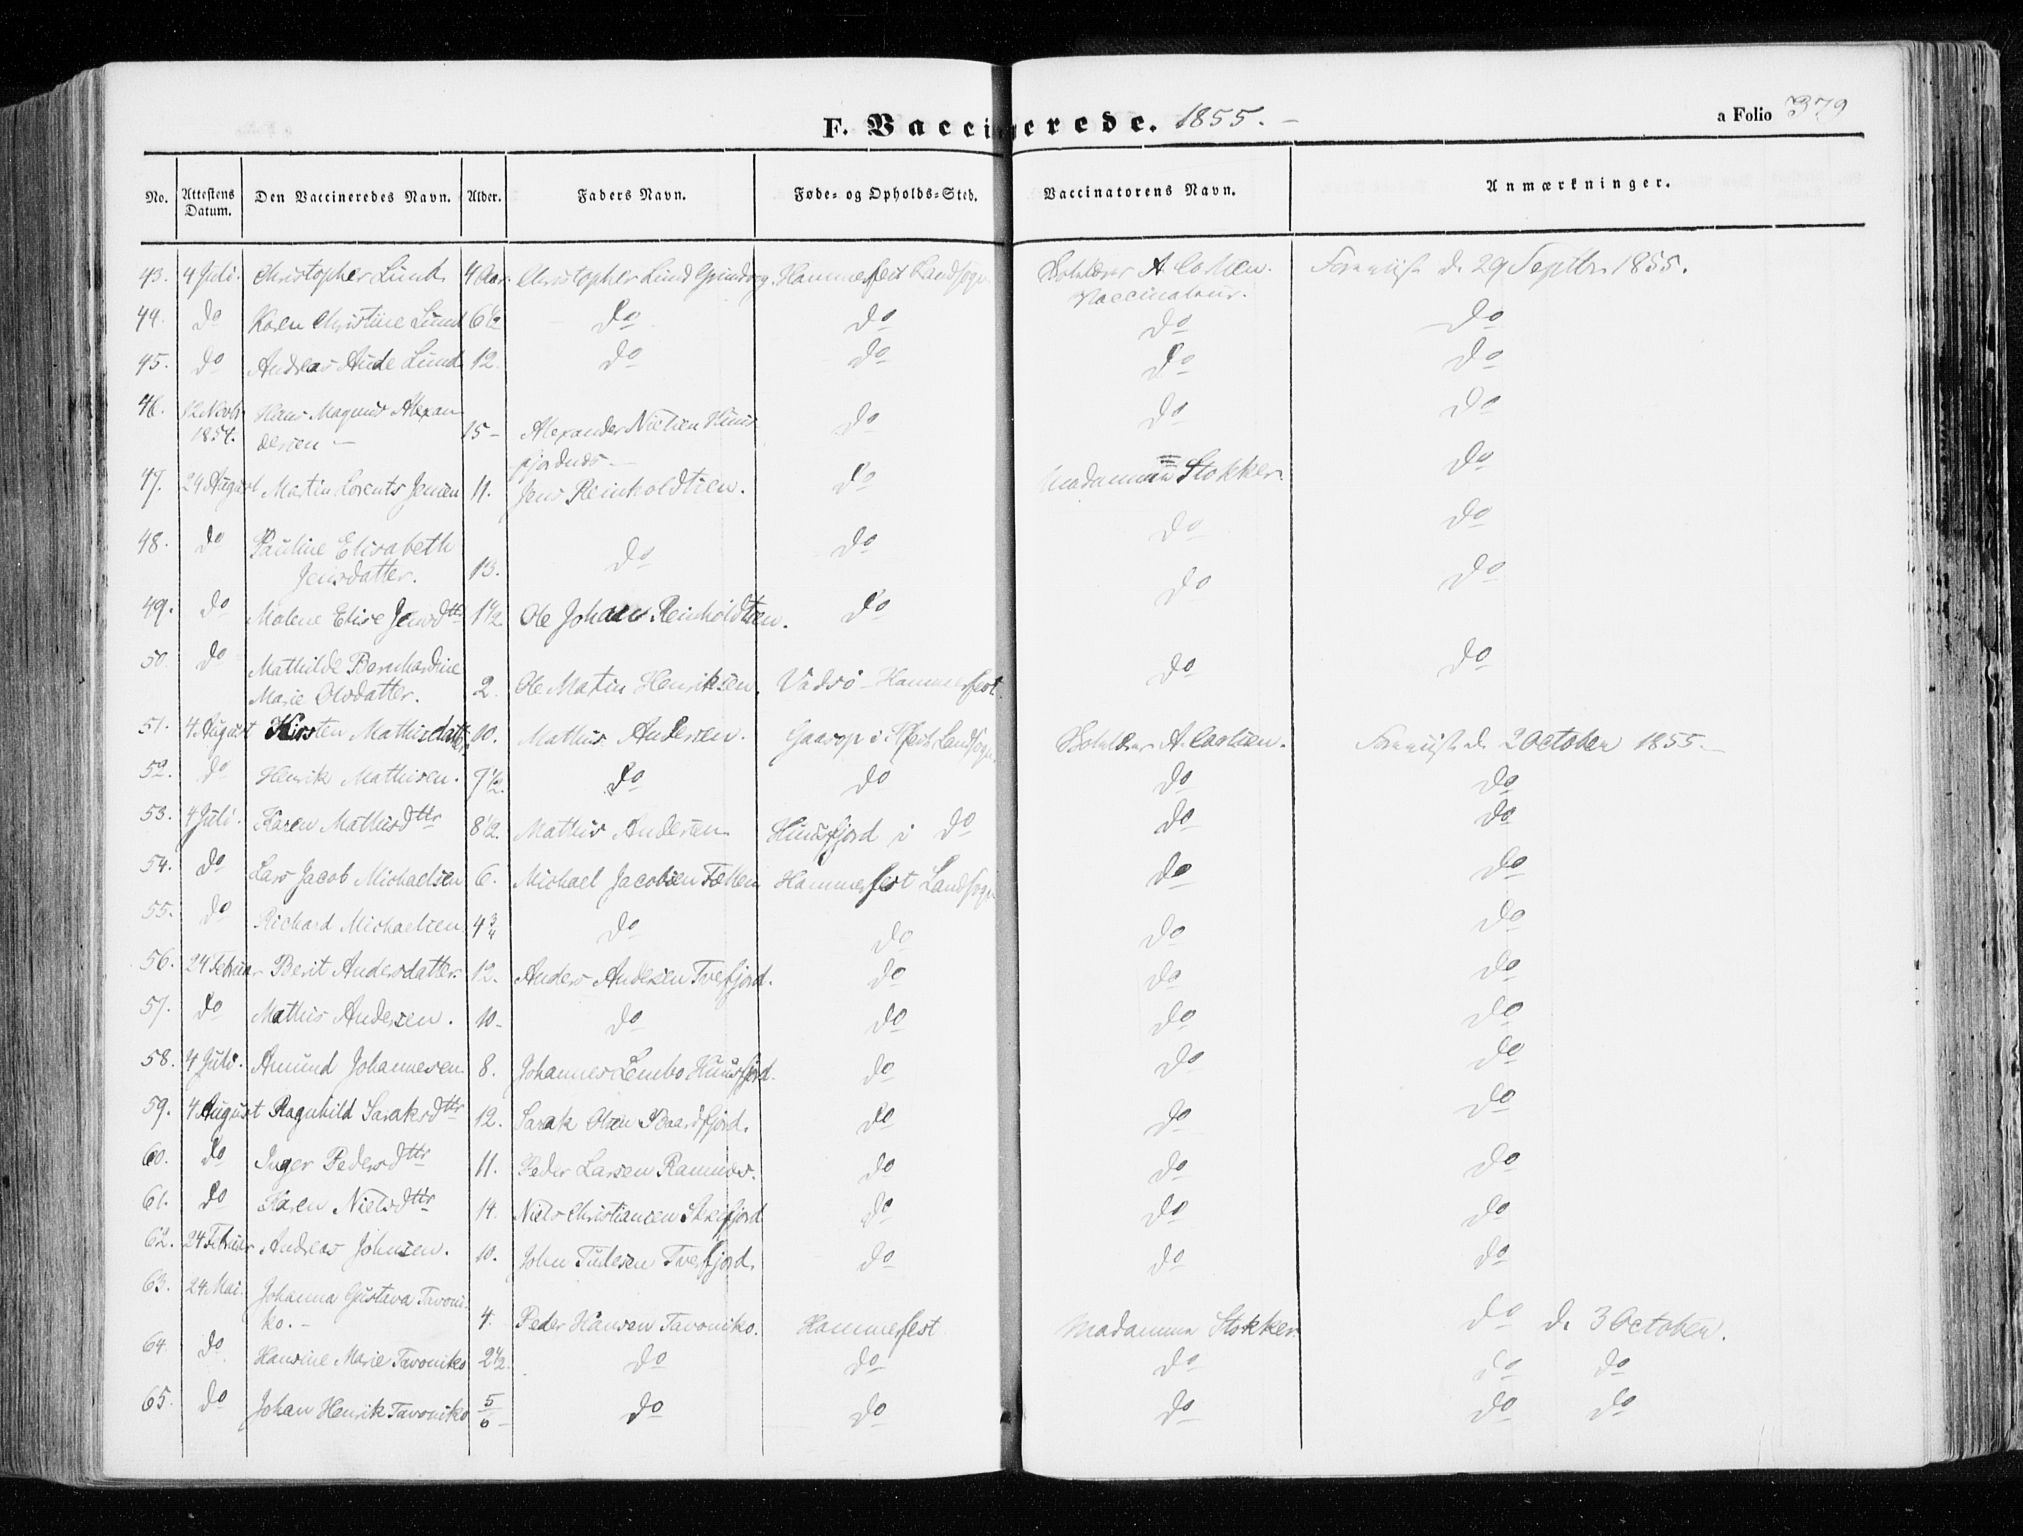 F. Vaccinerede. 1855. -
a Folio 379
No. Attestens Datum. Den Vaccineredes Navn. Alder. Faders Navn. Føde- og Opholds-Sted. Vaccinatorens Navn. Anmærkninger.
43. 4 Juli. Christopher Lund. 4 Aar. Christopher Lund Hammerfest Landsogn. A 29 Septbr. 1855.
Vaccinateur.
44. do Karen Christine Lund 6 1/2 do do do do
45. do Andreas Aude Lund 12. do do do do
46. 12 Novbr 1854. Hans Magnus Alexandersen - 15 - Alexander Nielsen do do do
47. 24 August Martin Lorents Jensen 11. Jens Reinholdtsen. do Madamme Stokker. do
48. do Pauline Elisabeth Jensdatter. 13. do do do do
49. do Malene Elise Jensdtr 1 1/2. Ole Johan Reinholdtsen. do do do
50. do Mathilde Bernhardine Marie Olsdatter. 2. Ole Matin Henriksen. Vadsö - Hammerfest do do
51. 4 August Kirsten Mathisdatter 10. Mathis Andersen. i Hfest Landsogn. A. 2 October 1855. -
52. do Henrik Mathisen. 7 1/2. do do do do
53. 4 Juli. Karen Mathisdttr 8 1/2. Mathis Andersen. Huusfjord i do do do
54. do Lars Jacob Michaelsen 6. Michael Jacobsen Hammerfest Landsogn do do
55. do Richard Michaelsen 4 3/4 do do do do
56. 24 Februar Berit Andersdatter. 12. Anders Andersen Tverfjord. do do do
57. do Mathis Andersen. 10 - do do do do
58. 4 Juli. Amund Johannesen 8. Johannes Lembo Huusfjord. do do do
59. 4 August Ragnhild Saraksdttr 12. Sarak Olsen Baardfjord. do do do
60. do Inger Pedersdttr 11. Peder Larsen Ramnæs. do do do
61. do Karen Nielsdttr 14. Niels Christiansen do do do
62. 24 Februar Andreas Johnsen. 10. John Tudesen Tverfjord. do do do
63. 24 Mai. Johanna Gustava Tavoniko. - 4. Peder Hansen Tavoniko. Hammerfest Madamme Stokker do d. 3 October.
64 do Hansine Marie Tavoniko 2 1/2. do do do do do
65. do Johan Henrik Tavoniko 5/6 - do do do do do